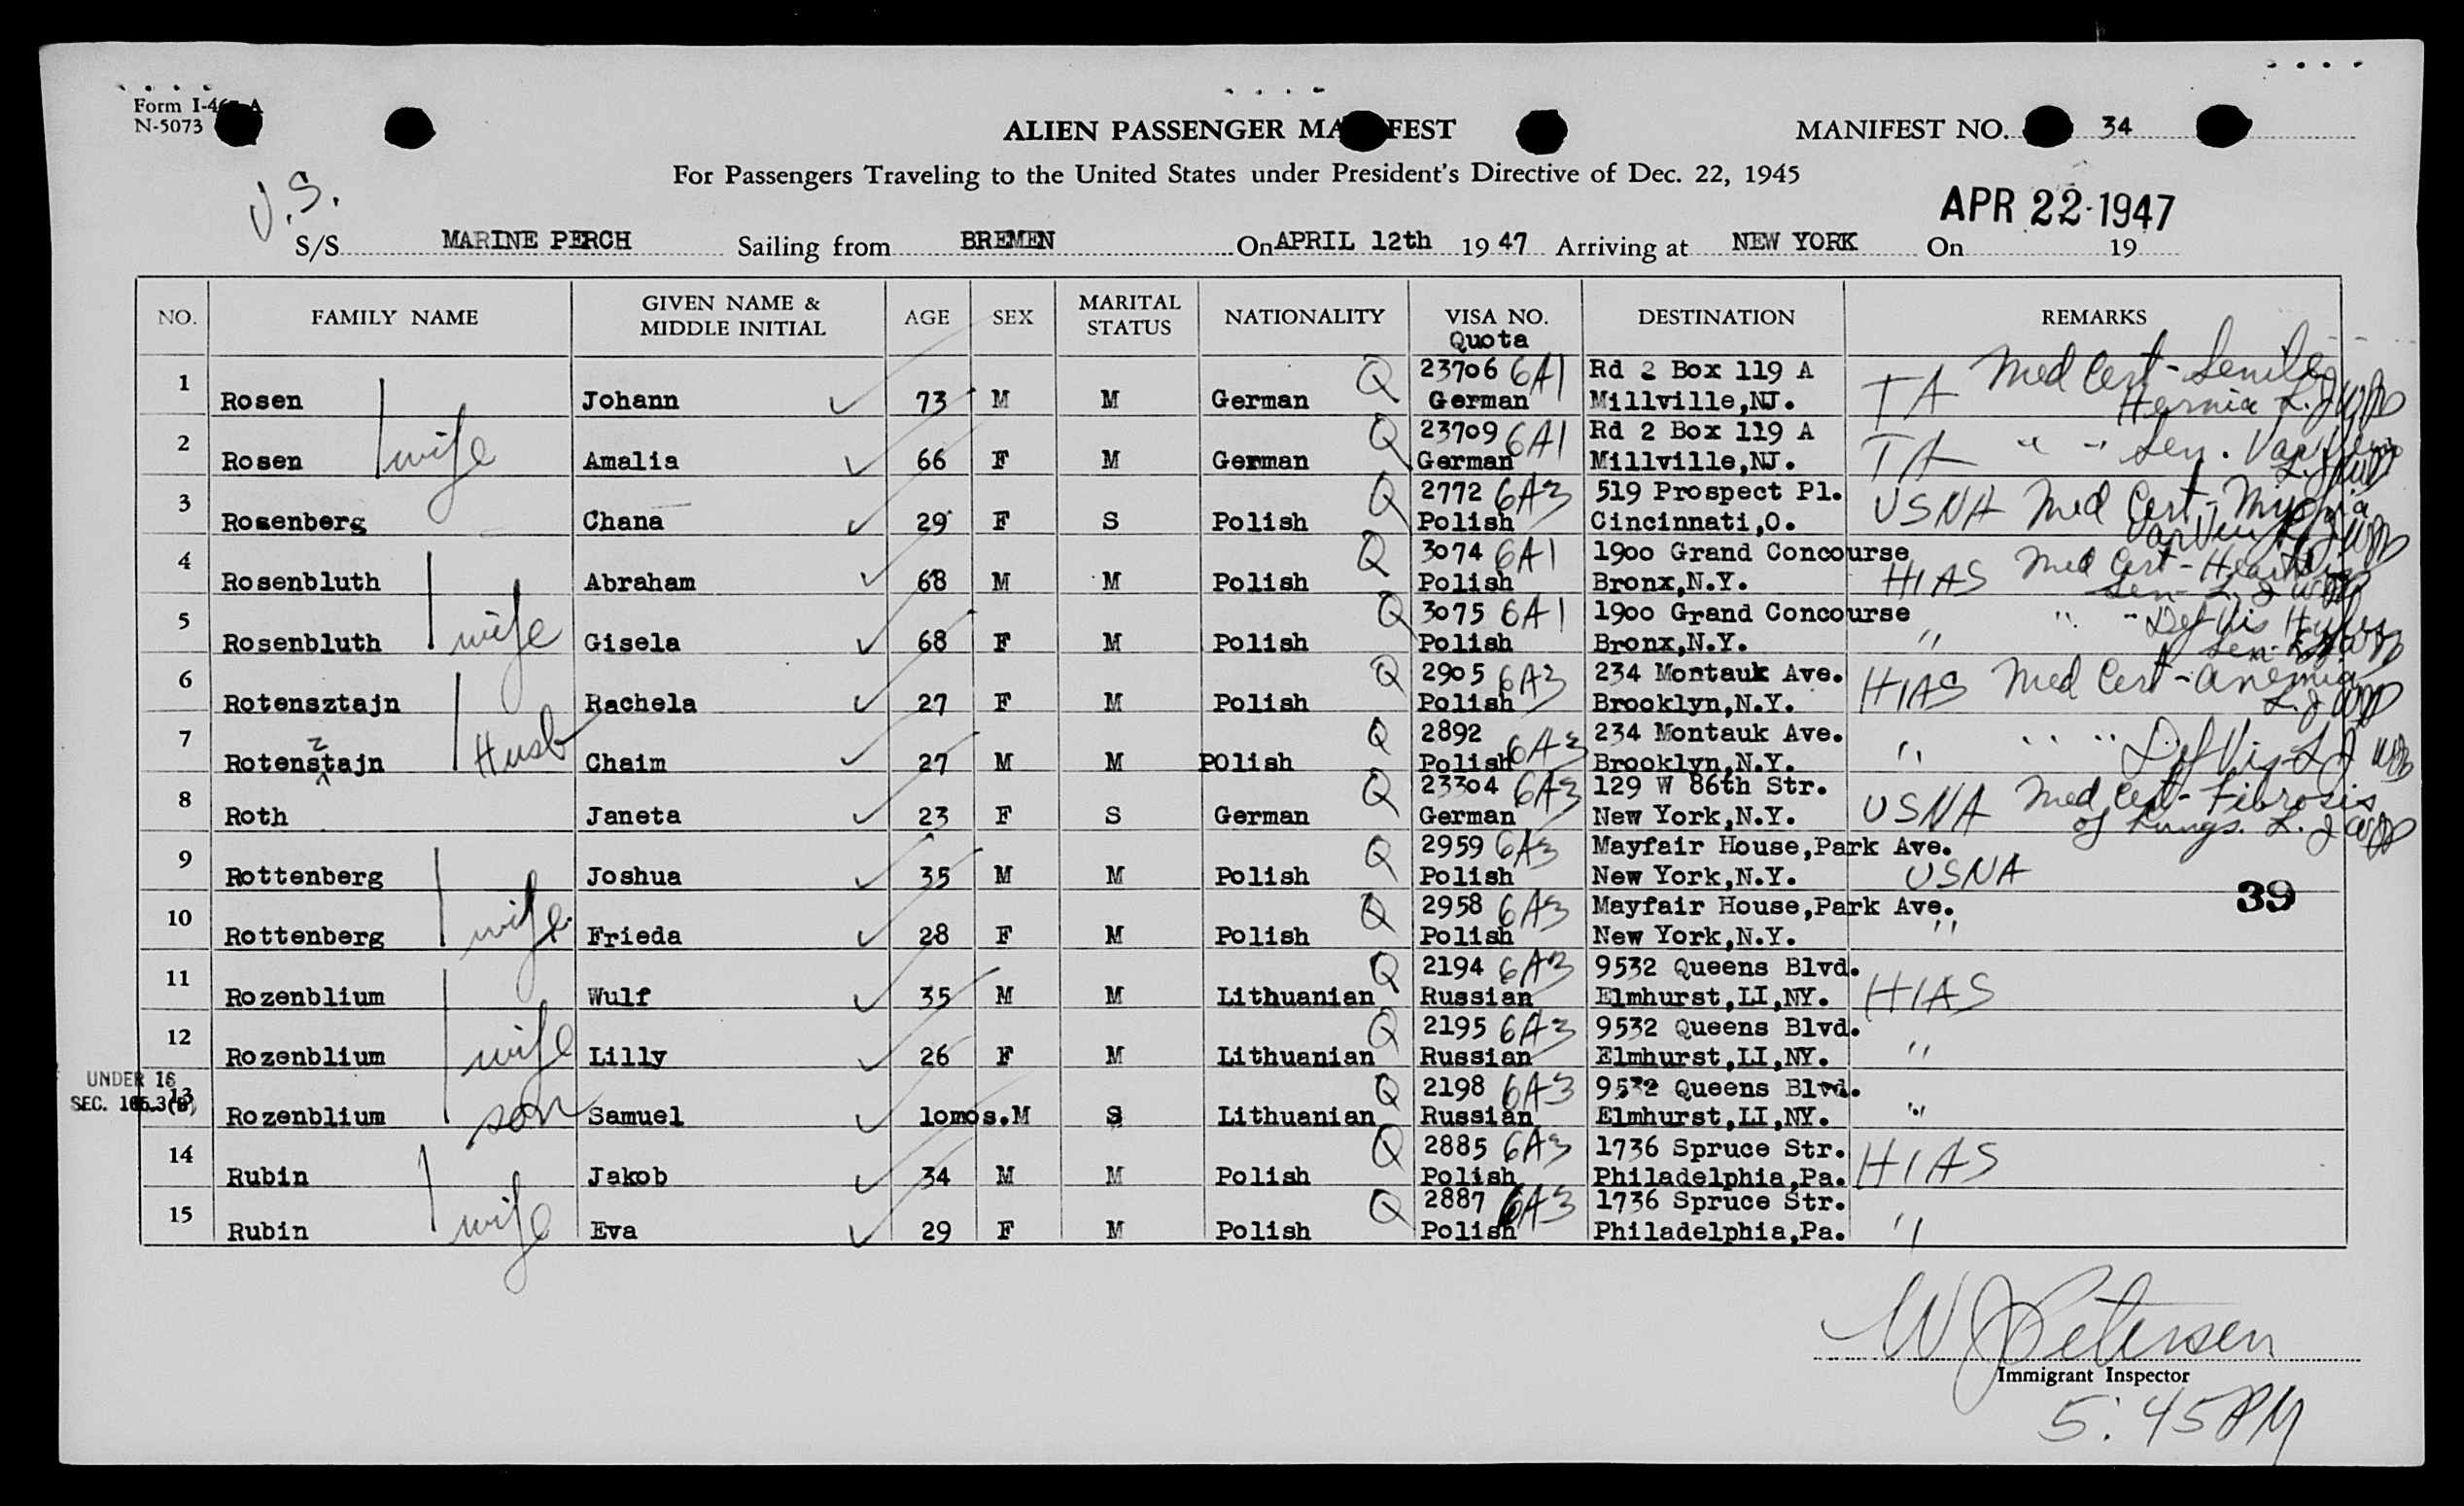 Form I-46 A
N-5073
ALIEN PASSENGER MA FEST
MANIFEST NO. 34
For Passengers Traveling to the United States under President's Directive of Dec. 22, 1945
U.S.
APR 22 1947
S/S MARINE PERCH Sailing from BREMEN On APRIL 12th 1947 Arriving at NEW YORK On 19
NO. FAMILY NAME GIVEN NAME & MIDDLE INITIAL AGE SEX MARITAL STATUS NATIONALITY VISA NO. Quota DESTINATION REMARKS
1 Q 23706 6A1 Rd 2 Box 119 A Med Cert - Senile
Rosen Johann 73 M M German German Millville,NJ. TA Hernia
2 Q 23709 6A1 Rd 2 Box 119 A
Rosen wife Amalia 66 F M German German Millville,NJ. TA " " Sen.
3 Q 2772 6A3 519 Prospect Pl.
Rosenberg Chana 29 F S Polish Polish Cincinnati,O. USNA Med Cert - Myopia
4 Q 3074 6A1 1900 Grand Concourse
Rosenbluth Abraham 68 M M Polish Polish Bronx,N.Y. HIAS Med Cert - Sen
5 Q 3075 6A1 1900 Grand Concourse " - Def Vis
Rosenbluth wife Gisela 68 F M Polish Polish Bronx,N.Y. " Sen.
6 Q 2905 6A3 234 Montauk Ave.
Rotensztajn Rachela 27 F M Polish Polish Brooklyn,N.Y. HIAS Med Cert - Anemia
7 Q 2892 6A3 234 Montauk Ave.
z
Rotenstajn Husb Chaim 27 M M POlish Polish Brooklyn,N.Y. " " " Def Vis L.J.
8 Q 23304 6A3 129 W 86th Str.
Roth Janeta 23 F S German German New York,N.Y. USNA Med Cert - Fibrosis of Lungs. L.J.
9 Q 2959 6A3 Mayfair House,Park Ave.
Rottenberg Joshua 35 M M Polish Polish New York,N.Y. USNA
39
10 Q 2958 6A3 Mayfair House,Park Ave.
Rottenberg wife Frieda 28 F M Polish Polish New York,N.Y. "
11 Q 2194 6A3 9532 Queens Blvd.
Rozenblium Wulf 35 M M Lithuanian Russian Elmhurst,LI,NY. HIAS
12 Q 2195 6A3 9532 Queens Blvd.
Rozenblium wife Lilly 26 F M Lithuanian Russian Elmhurst,LI,NY. "
UNDER 16
SEC. 165.3(B)
13 Q 2198 6A3 9532 Queens Blvd.
Rozenblium son Samuel 10mos. M S Lithuanian Russian Elmhurst,LI,NY. "
14 Q 2885 6A3 1736 Spruce Str.
Rubin Jakob 34 M M Polish Polish Philadelphia,Pa. HIAS
15 Q 2887 6A3 1736 Spruce Str.
Rubin wife Eva 29 F M Polish Polish Philadelphia,Pa. "
W J Petersen
Immigrant Inspector
5:45 PM